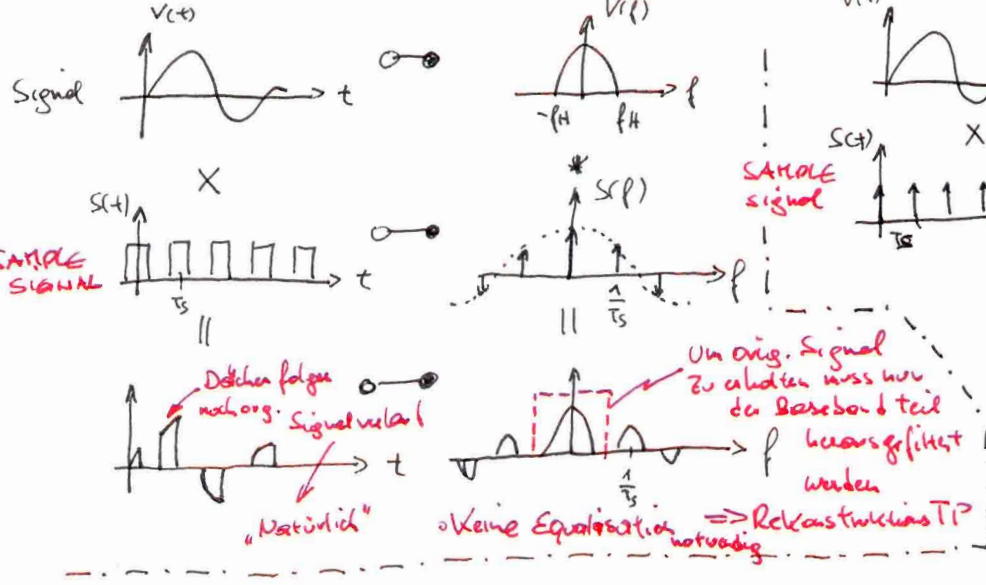 V(t)
V(f)
Signal
t
f
-fH
fH
X
*
S(t)
S(f)
SAMPLE
SIGNAL
t
f
Ts
1/Ts
||
||
SAMPLE
signal
S(t)
X
Ts
Dächer folgen
noch org. Signalverlauf
"Natürlich"
t
f
1/Ts
Um orig. Signal
zu erhalten muss nur
der Baseband teil
herausgefiltert
werden
Keine Equalisation notwendig
=> Rekonstruktions TP